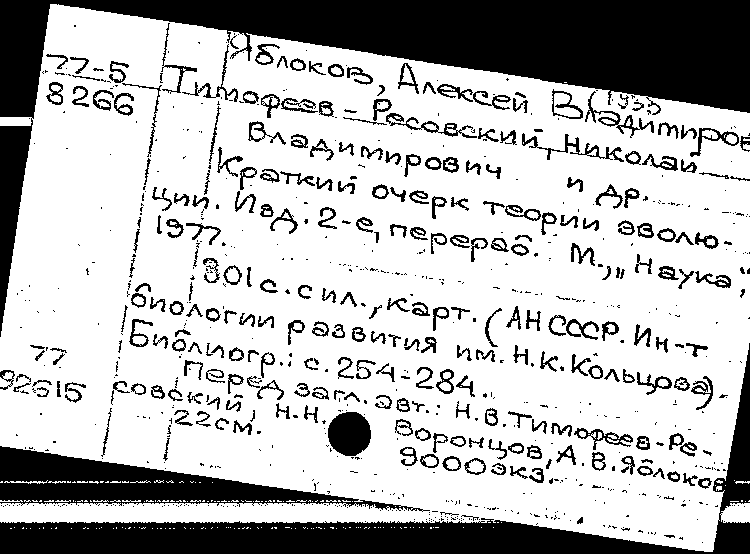 Яблоков, Алексей Владимиров
(1933
77-5
8266
Тимофеев-Ресовский, Николай
Владимирович и др.
Краткий очерк теории эволю-
ции. Изд. 2-е, перераб. М., „Наука",
1977.
301 с. с ил., карт. (АН СССР. Ин-т
биологии развития им. Н.К.Кольцова).
Библиогр.: с. 254-284.
77
92615
Перед загл. авт.: Н.В.Тимофеев-Ре-
совский, Н.Н. Воронцов, А.В.Яблоков
22см. 9000экз.